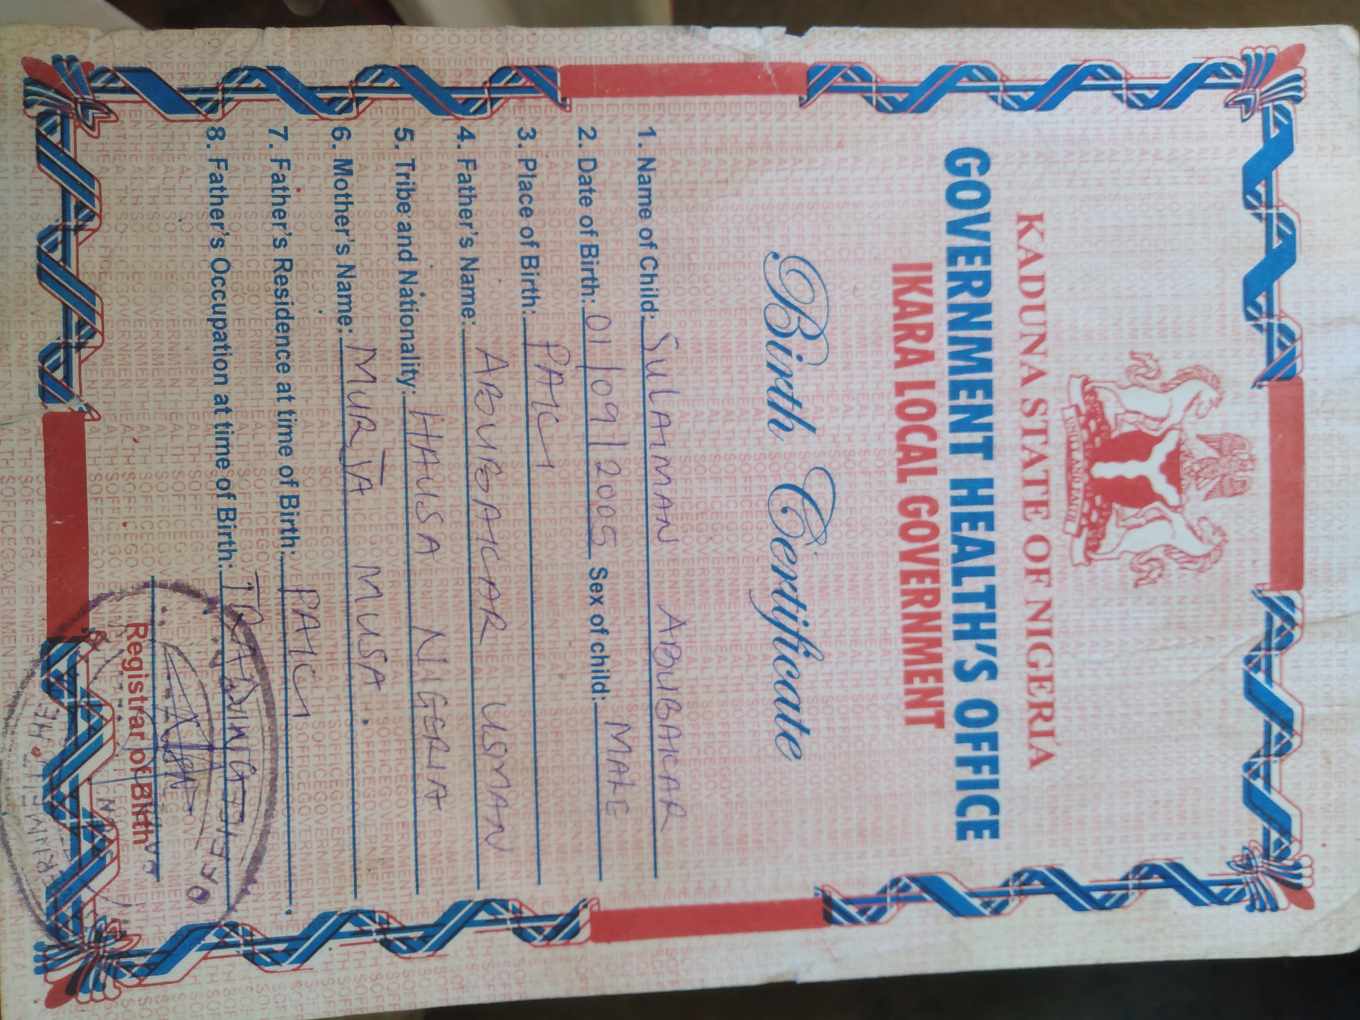 UNITY AND FAITH
KADUNA STATE OF NIGERIA
GOVERNMENT HEALTH'S OFFICE
IKARA LOCAL GOVERNMENT
Birth Certificate
1. Name of Child: SULAIMAN ABUBAKAR
2. Date of Birth: 01/09/2005 Sex of child: MALE
3. Place of Birth:
4. Father's Name: ABUBAKAR USMAN
5. Tribe and Nationality: HAUSA NIGERIA
6. Mother's Name: MURJA MUSA.
7. Father's Residence at time of Birth:
8. Father's Occupation at time of Birth:
Registrar of Birth